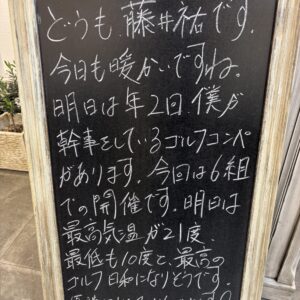 どうも、藤井祐です。
今日も暖かいですね。
明日は年2回僕が
幹事をしているゴルフコンペ
があります。今回は6組
での開催です。明日は
最高気温が21度、
最低も10度と、最高の
ゴルフ日和になりそうです